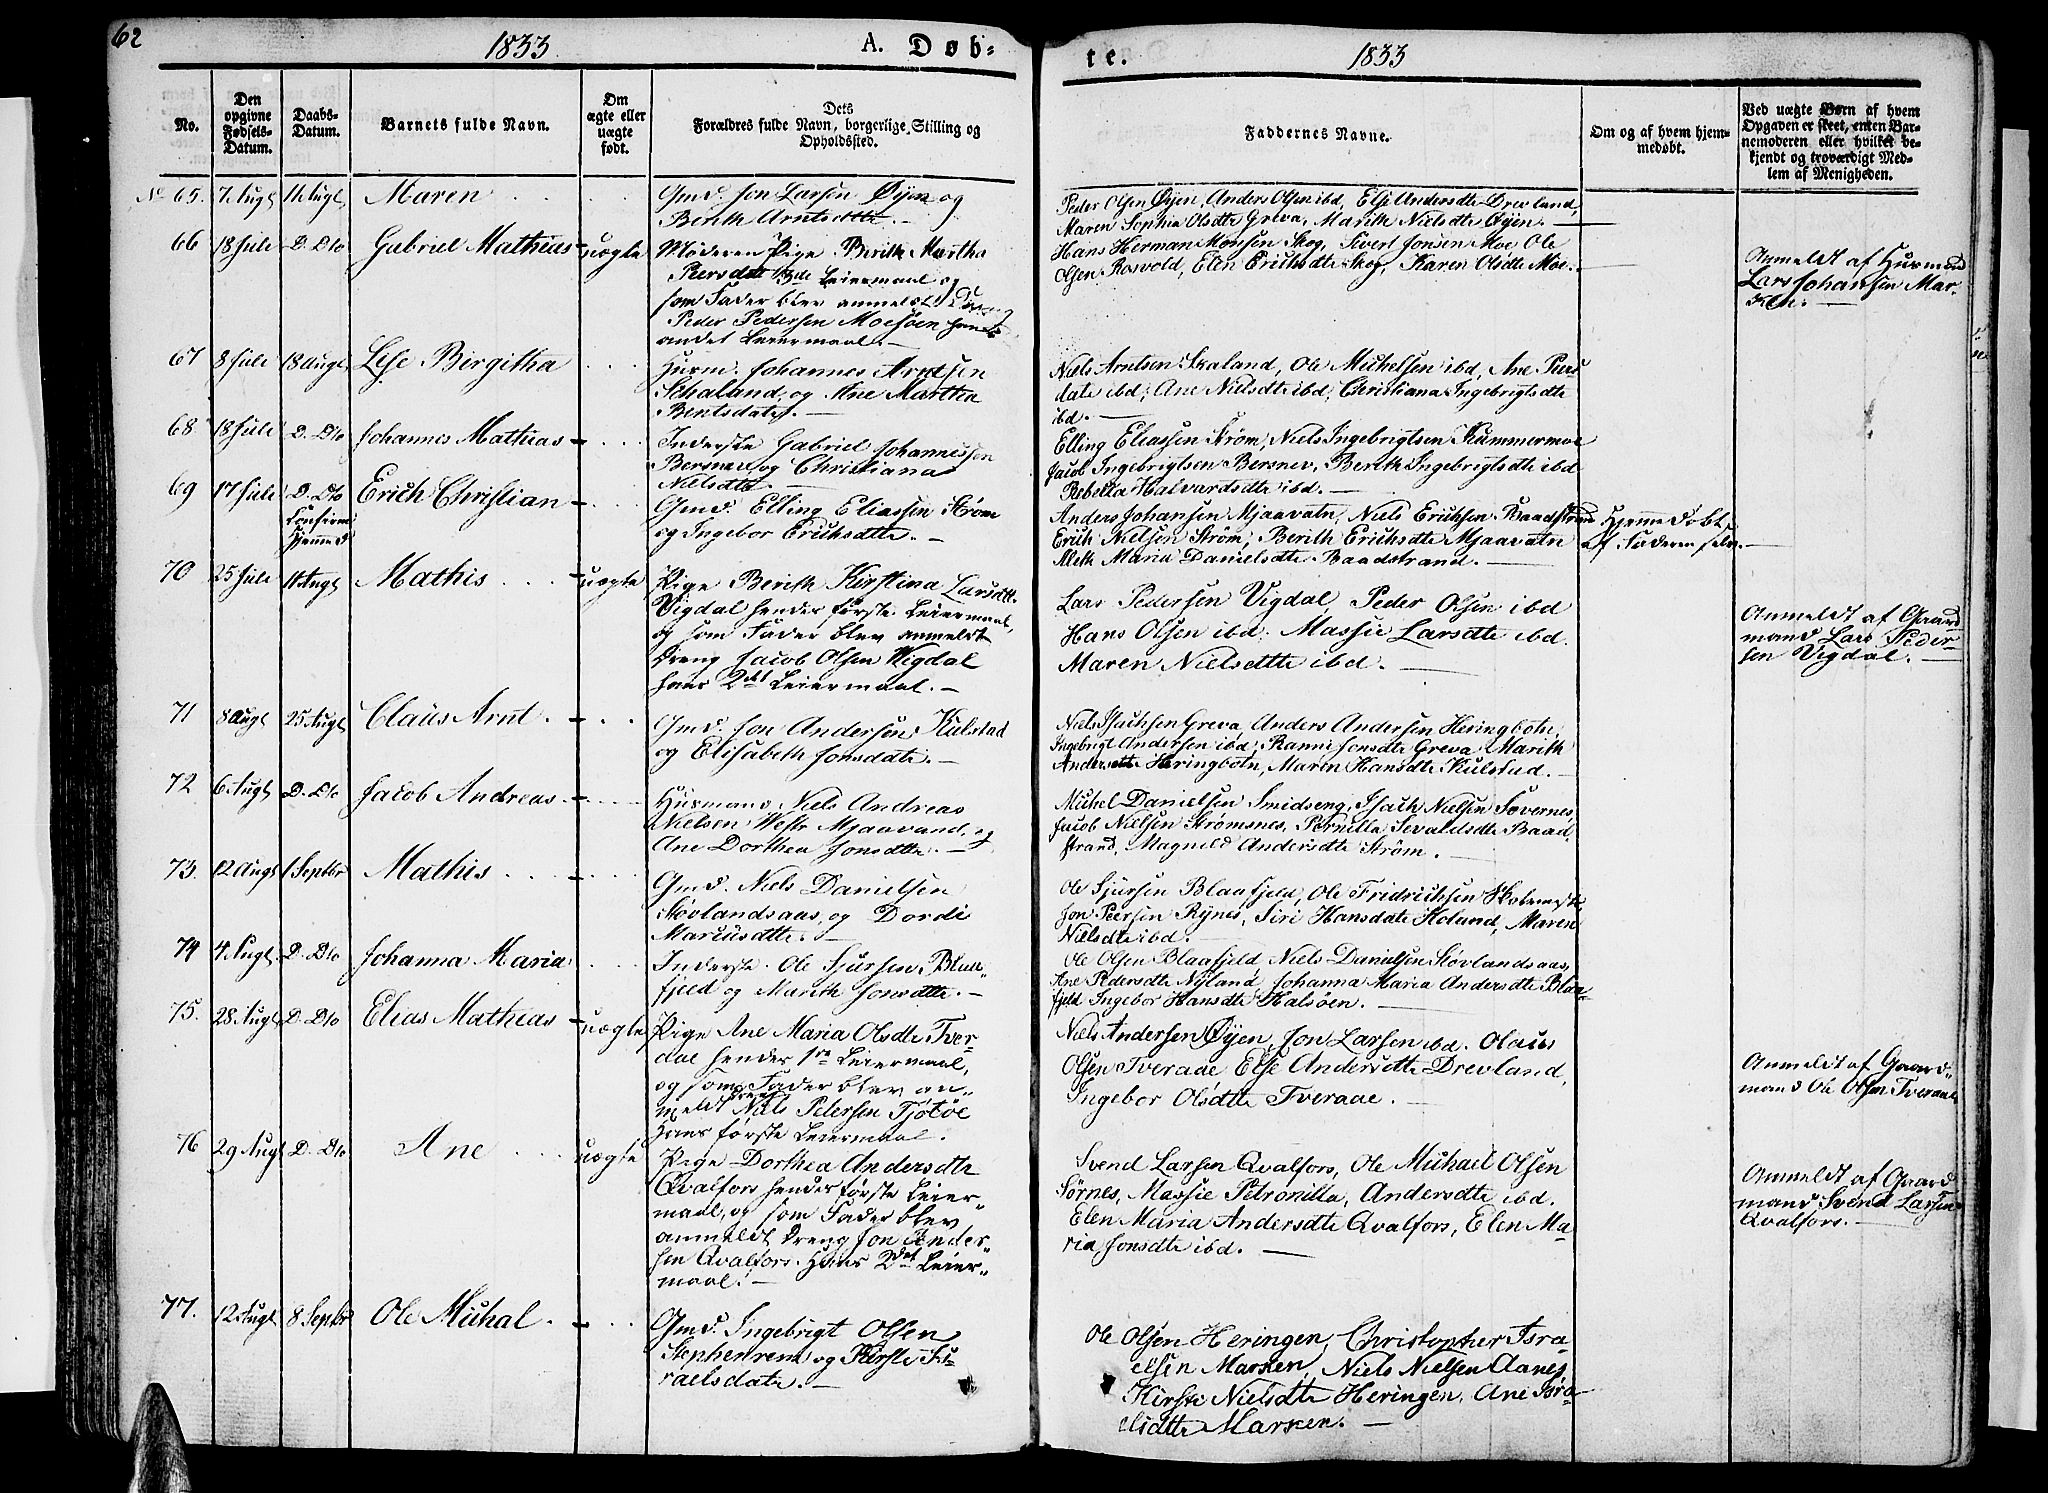 62
1833
A. Døb-
te.
1833
No.
Den opgivne Fødsels-Datum.
Daabs-Datum.
Barnets fulde Navn.
Om ægte eller uægte født.
Dets Forældres fulde Navn, borgerlige Stilling og Opholdssted.
Faddernes Navne.
Om og af hvem hjemmedøbt.
Ved uægte Børn af hvem
Opgaven er skeet, enten Bar-
nemoderen eller hvilket be-
kjendt og troværdigt Med-
lem af Menigheden.
No 65. 7 Augt 11 Augt. Maren
Gmd. Jon Larsen Øyen og
Berith Arntsdtr. —
Peder Olsen Øyen, Anders Olsen ibd, Else Andersdte Drevland,
Maren Sophia Olsdte Greva, Marith Nielsdte Øyen. —
66 18 Juli D. Dto Gabriel Mathias uægte
Moderen Pige Berith Martha
Persdte 13de Leiermaal og
som Fader blev anmeldt Dreng
Peder Pedersen Moesøen hans
andet Leiermaal. —
Hans Herman Monsen Skog, Sivert Jonsen Moe Ole
Olsen Rosvold, Elen Erichsdte Skog, Karen Olsdte Moe. —
Anmeldt af Husmand
Lars Johansen Mar-
ken. —
67 8 Juli 18 Augt. Lise Bergitha
Husm. Johannes Arntsen
Schaland, og Ane Martha
Bentsdatr. —
Niels Arntsen Skaland, Ole Michelsen ibd, Ane Piers
date ibd; Ane Nielsdte ibd; Christiana Ingebrigtsdte
ibd. —
68. 18 Juli D. Dto Johannes Mathias
Inderste Gabriel Johannessen
Bersnev, og Christiana
Nielsdte. —
Elling Eliassen Strøm, Niels Ingebrigtsen Kummermoe
Jacob Ingebrigtsen Bersnev, Berith Ingebrigtsdte ibd
Rebecka Halvardsdte ibd. —
69 17 Juli D. Dto Confirm Hjemmed Erich Christian
Gmd. Elling Eliassen Strøm
og Ingebor Erichsdtte. —
Anders Johansen Mjaavatn, Niels Erichsen Baadstrand
Erich Nielsen Strøm, Berith Erichsdte Mjaavatn
Aleth Maria Danielsdte Baadstrand. —
Hjemmedøbt
af Faderen selv. —
70 25 Juli 11 Augt Mathis uægte
Pige Berith Kirstina Larsdtt.
Vigdal hendes første Leiermaal,
og som Fader blev anmeldt
Dreng Jacob Olsen Vigdal
hans 2det Leiermaal. —
Lars Pedersen Vigdal, Peder Olsen ibd
Hans Olsen ibd; Massie Larsdte ibd.
Maren Nielsdtte ibd. —
Anmeldt af Gaard
mand Lars Peder-
sen Vigdal. —
71 8 Augt 25 Augt Claus Arnt.
Gmd. Jon Andersen Kulstad
og Elisabeth Jonsdate. —
Niels Isachsen Greva, Anders Andersen Heringbotn,
Ingebrigt Andersen ibd; Ranni Jonsdte Greva, Marith
Andersdte Heringbotn, Maren Hansdte Kulstad. —
72 6 Augt D. Dto Jacob Andreas.
Husmand Niels Andreas
Nielsen Westr Mjaavand, og
Ane Dorthea Jonsdtte. —
Michel Danielsen Smidseng, Isach Nielsen Søvernes,
Jacob Nielsen Strømsnes, Pernilla Sevaldsdte Baad
strand, Magnild Andersdte Strøm. —
73. 12 Augt 1 Septbr Mathis
Gmd. Niels Danielsen
Støvlandsaas, og Dordi
Marcusdtte. —
Ole Sjursen Blaafjeld, Ole Fridrichsen
Jon Peersen Rynes, Siri Hansdate Holand, Maren
Nielsdte ibd. —
74 4 Augt D. Dto Johanna Maria
Inderste Ole Sjursen Blaa-
fjeld og Marith Jonsdtte. —
Ole Olsen Blaafjeld Niels Danielsen Støvlandsaas,
Ane Pedersdte Nyland, Johanna Maria Andersdte Blaa-
fjeld Ingebor Hansdte Halsøen. —
75. 28 Augt D. Dto Elias Mathias uægte
Pige Ane Maria Olsdte Tver-
aae hendes 1re Leiermaal,
og som Fader blev an-
meldt Dreng Niels Petersen Tjøtøe
Hans første Leiermaal.
Niels Andersen Øyen, Jon Larsen ibd. Olaus
Olsen Tveraae Else Andersdtte Drevland,
Ingebor Olsdtte Tveraae.
Anmeldt af Gaard-
mand Ole Olsen Tveraae
76 29 Augt D. Dto Ane uægte
Pige Dorthea Andersdte
Qvalfors hendes første Leier-
maal, og som Fader blev
anmeldt Dreng Jon Ander-
sen Qvalfors. Hans 2det Leier-
maal. —
Svend Larsen Qvalfors, Ole Michael Olsen
Sørnes, Massie Petronilla, Andersdte ibd.
Elen Maria Andersdte Qvalfors, Elen Ma-
ria Jonsdte ibd. —
Anmeldt af Gaard
mand Svend Larsen
Qvalfors. —
77. 12 Augt 8 Septbr Ole Michal.
Gmd. Ingebrigt Olsen
Stephenrem og Kirsti Is-
raelsdate. —
Ole Olsen Heringen, Christopher Isra-
elsen Marken, Niels Nielsen Aanes
Kirsti Nielsdte Heringen, Ane Isra-
elsdtte Marken. —